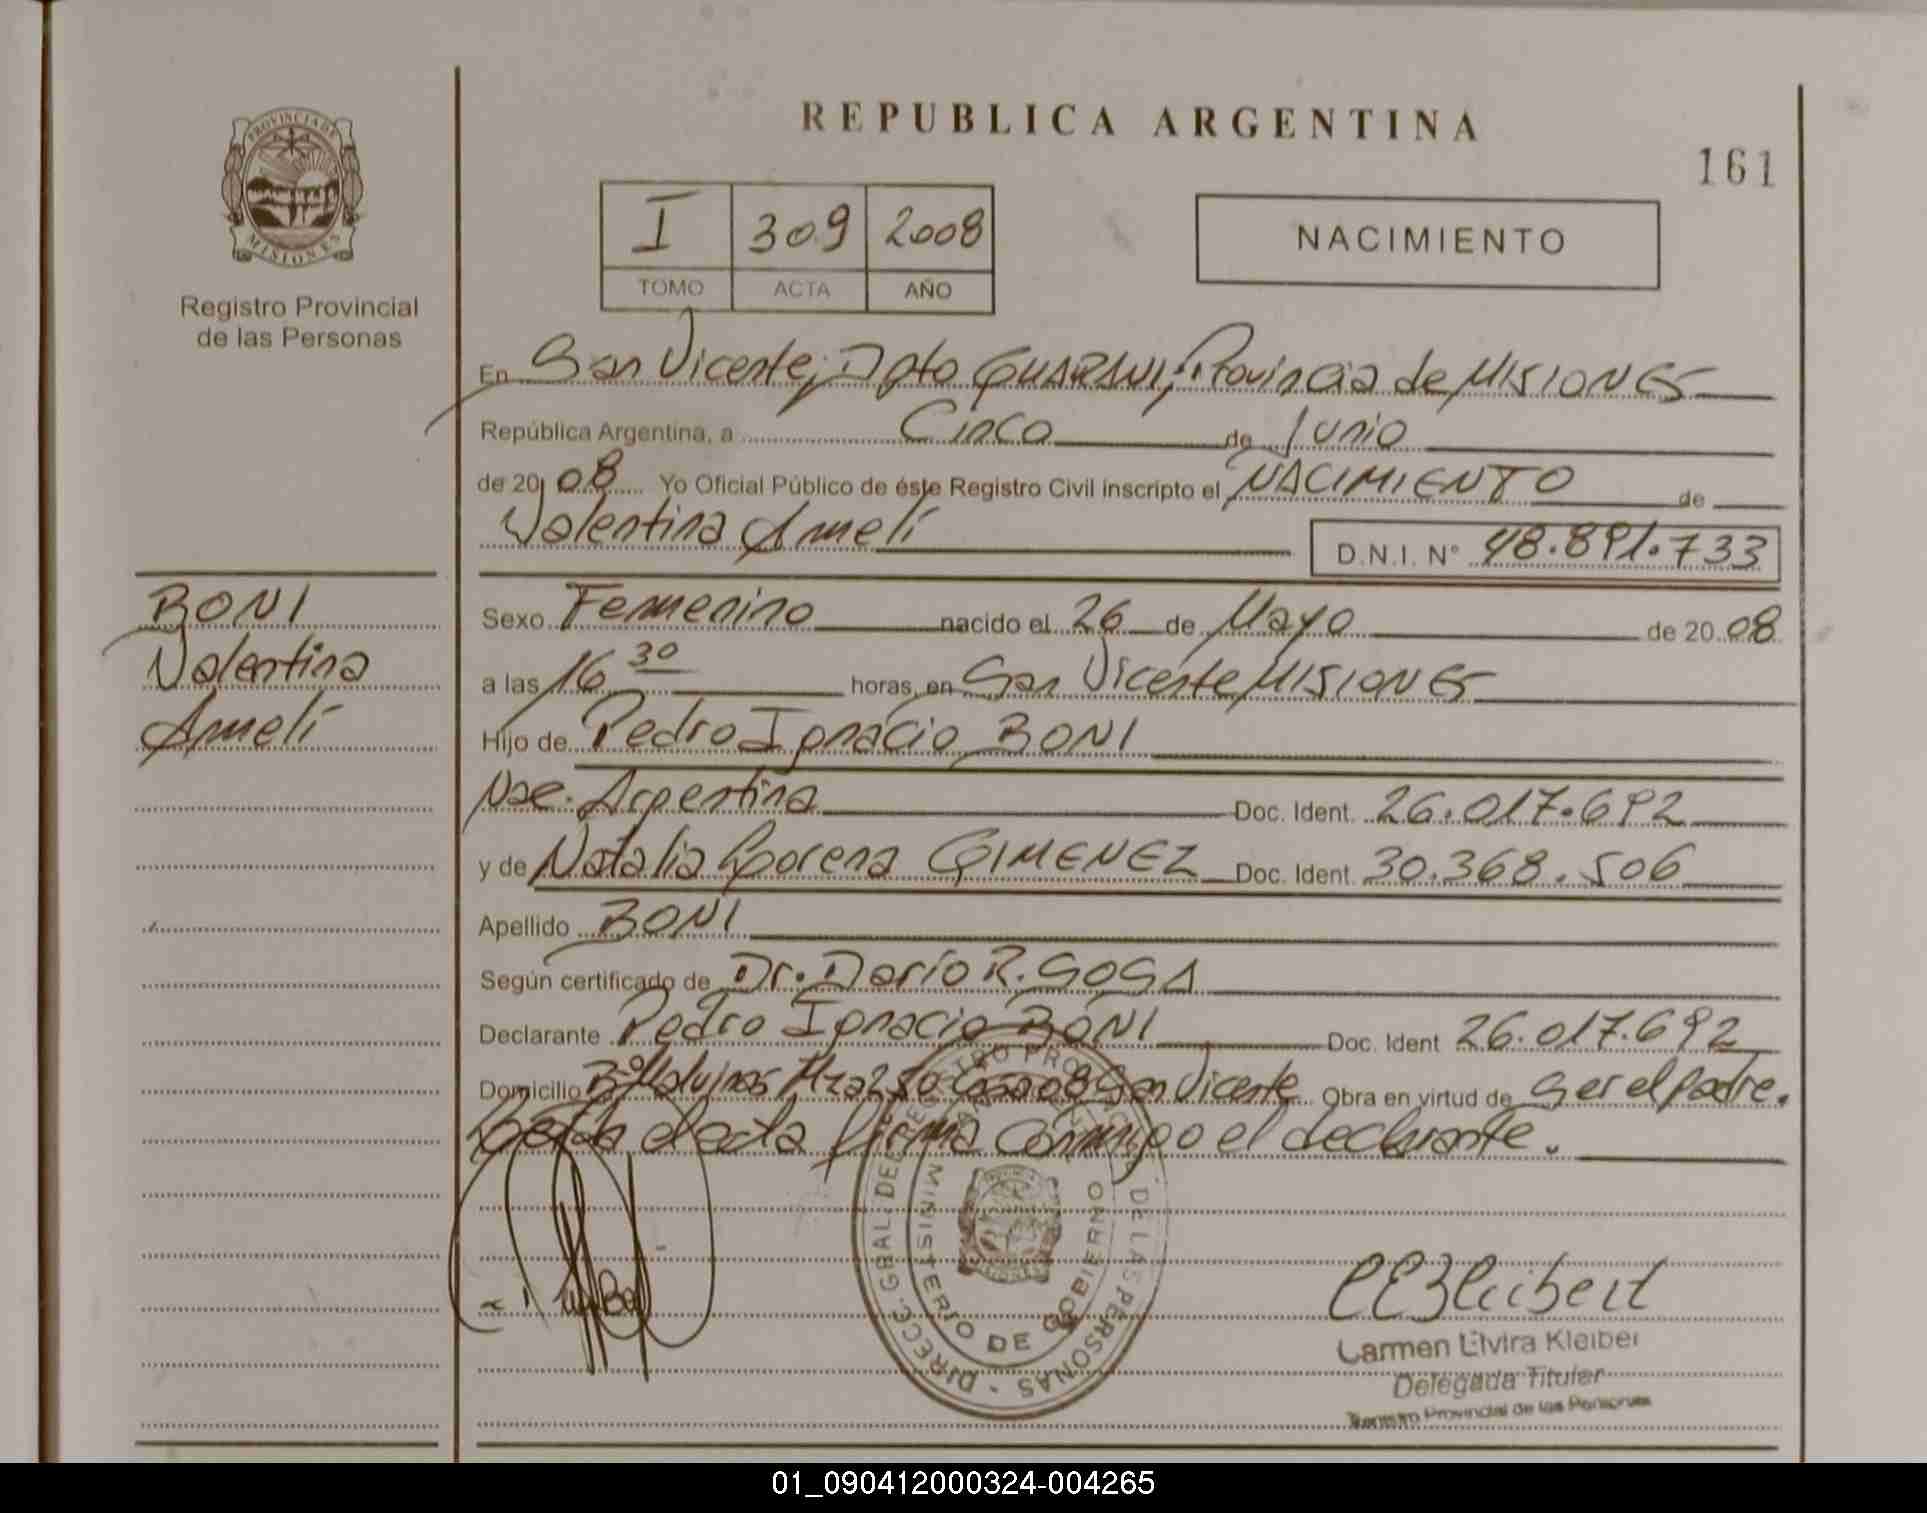 PROVINCIA DE
MISIONES
Registro Provincial
de las Personas
BONI
Valentina
Amelí
REPUBLICA ARGENTINA
161
I 309 2008
TOMO ACTA AÑO
NACIMIENTO
En San Vicente, Dpto GUARANI, Provincia de MISIONES
República Argentina, a Cinco de Junio
de 2008 Yo Oficial Público de éste Registro Civil inscripto el NACIMIENTO de
Valentina Amelí D.N.I. N° 48.891.733
Sexo Femenino nacido el 26 de Mayo de 2008
a las 16 30 horas, en San Vicente MISIONES
Hijo de Pedro Ignacio BONI
Nac. Argentina Doc. Ident. 26.017.692
y de Natalia Lorena GIMENEZ Doc. Ident. 30.368.506
Apellido BONI
Según certificado de Dr. Darío R. SOSA
Declarante Pedro Ignacio BONI Doc. Ident 26.017.692
Domicilio B° Malvinas Mza 250 Casa 08 San Vicente Obra en virtud de ser el padre.
Leída el acta firma conmigo el declarante.
DIRECC. GRAL. DEL REGISTRO PROVINCIAL DE LAS PERSONAS
MINISTERIO DE GOBIERNO
Carmen Elvira Kleiber
Delegada Titular
Registro Provincial de las Personas
01_090412000324-004265